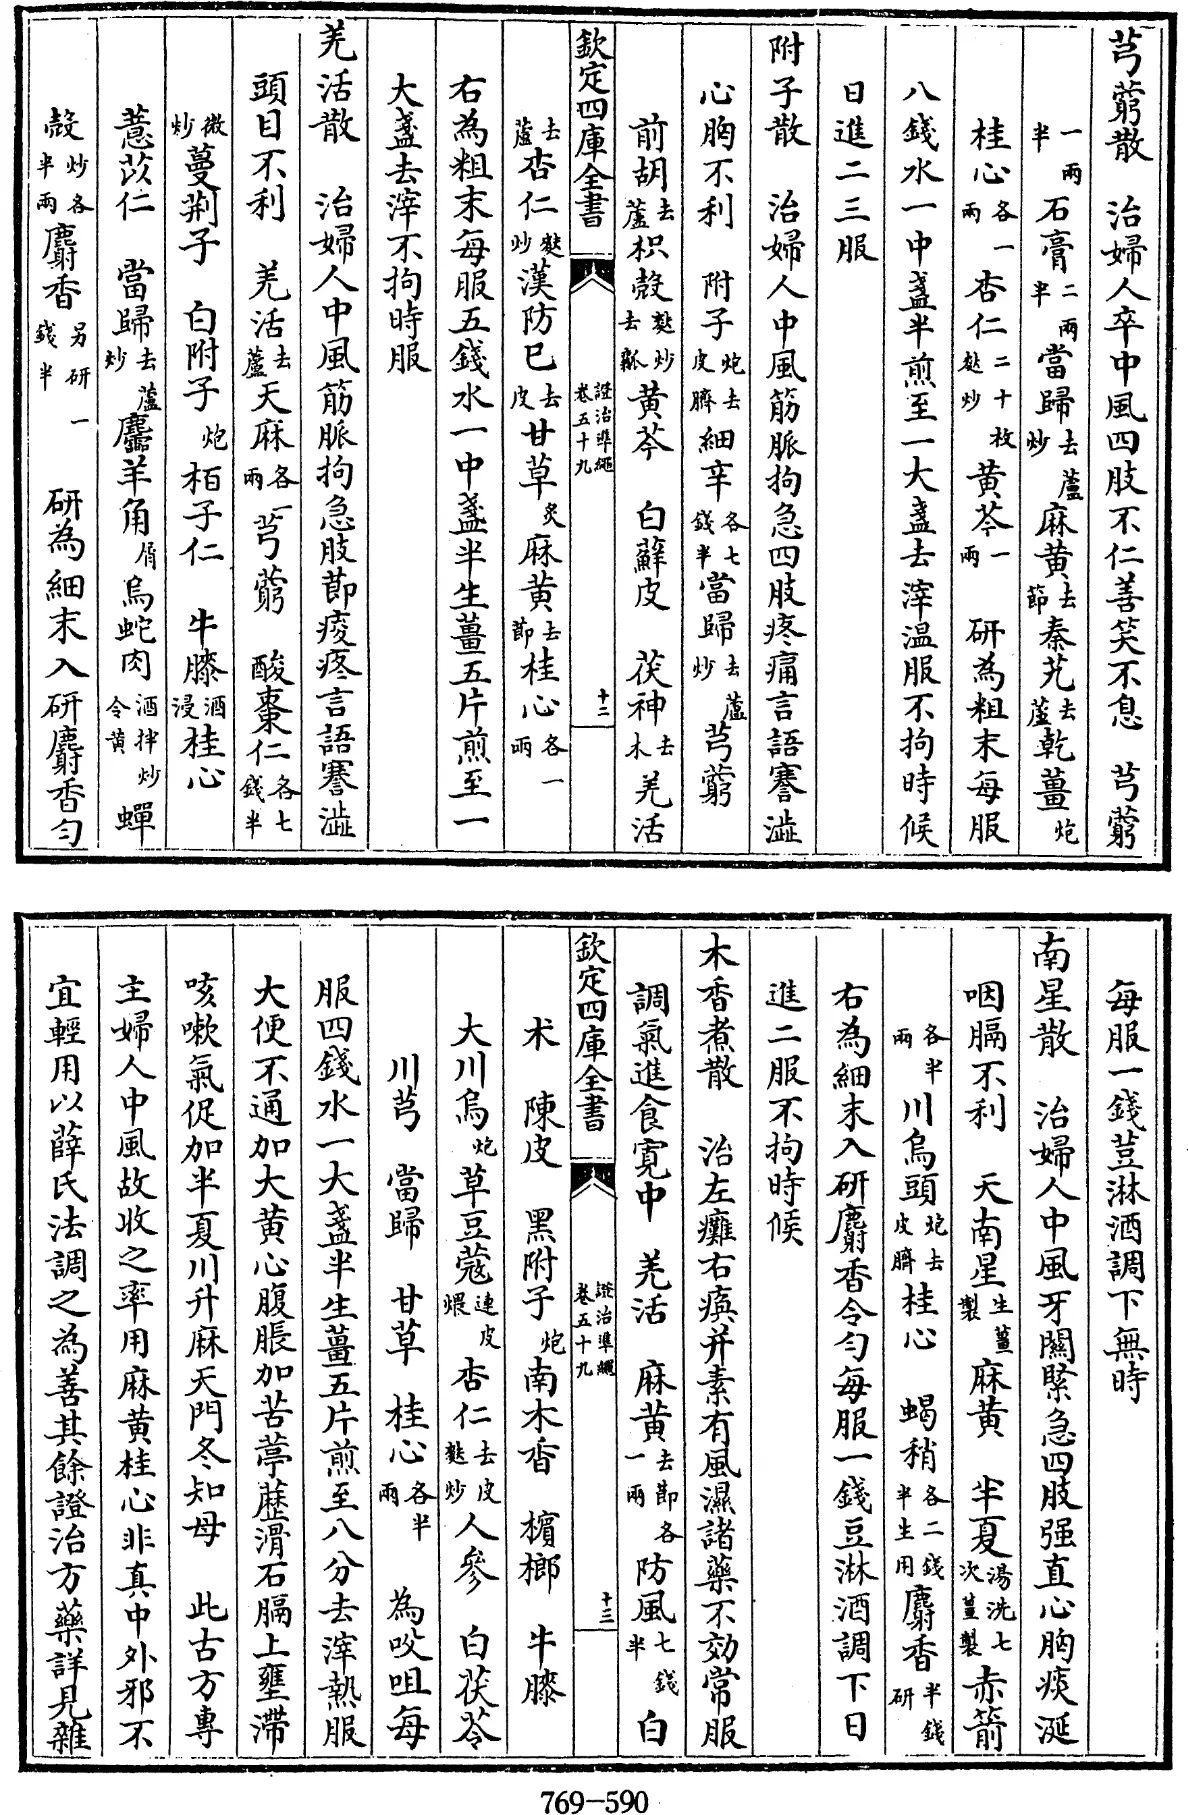 芎藭散　治婦人卒中風四肢不仁善笑不息　芎藭
一兩半石膏二兩半當歸去蘆炒麻黄去節秦艽去蘆乾薑炮
桂心各一兩杏仁二十枚麩炒黄芩一兩　研為粗末每服
八錢水一中盞半煎至一大盞去滓温服不拘時候
日進二三服
附子散　治婦人中風筋脈拘急四肢疼痛言語蹇澁
心胸不利　附子炮去皮臍細辛各七錢半當歸去蘆炒芎藭
前胡去蘆枳殻麩炒去瓤黄芩　白蘚皮　茯神去木羌活
欽定四庫全書　證治準繩卷五十九　十二
去蘆杏仁麩炒漢防已去皮甘草炙麻黄去節桂心各一兩
右為粗末每服五錢水一中盞半生薑五片煎至一
大盞去滓不拘時服
羌活散　治婦人中風筋脈拘急肢節痠疼言語蹇澁
頭目不利　羌活去蘆天麻各一兩芎藭　酸棗仁各七錢半
微炒蔓荆子　白附子炮栢子仁　牛膝酒浸桂心
薏苡仁　當歸去蘆炒麢羊角屑烏蛇肉酒拌炒令黄蟬
殻炒各半兩麝香另研一錢半　研為細末入研麝香匀
每服一錢荳淋酒調下無時
南星散　治婦人中風牙關緊急四肢强直心胸痰涎
咽膈不利　天南星生薑製麻黄　半夏湯洗七次薑製赤箭
各半兩川烏頭炮去皮臍桂心　蝎稍各二錢半生用麝香半錢研
右為細末入研麝香令匀每服一錢豆淋酒調下日
進二服不拘時候
木香煮散　治左癱右瘓并素有風濕諸藥不効常服
調氣進食寛中　羌活　麻黄去節各一兩防風七錢半白
欽定四庫全書　證治準繩卷五十九　十三
术　陳皮　黑附子炮南木香　檳榔　牛膝
大川烏炮草豆蔻連皮煨杏仁去皮麩炒人參　白茯苓
川芎　當歸　甘草　桂心各半兩　為㕮咀每
服四錢水一大盞半生薑五片煎至八分去滓熱服
大便不通加大黄心腹脹加苦葶藶滑石膈上壅滯
咳嗽氣促加半夏川升麻天門冬知母　此古方專
主婦人中風故收之率用麻黄桂心非真中外邪不
宜輕用以薛氏法調之為善其餘證治方藥詳見雜
769-590